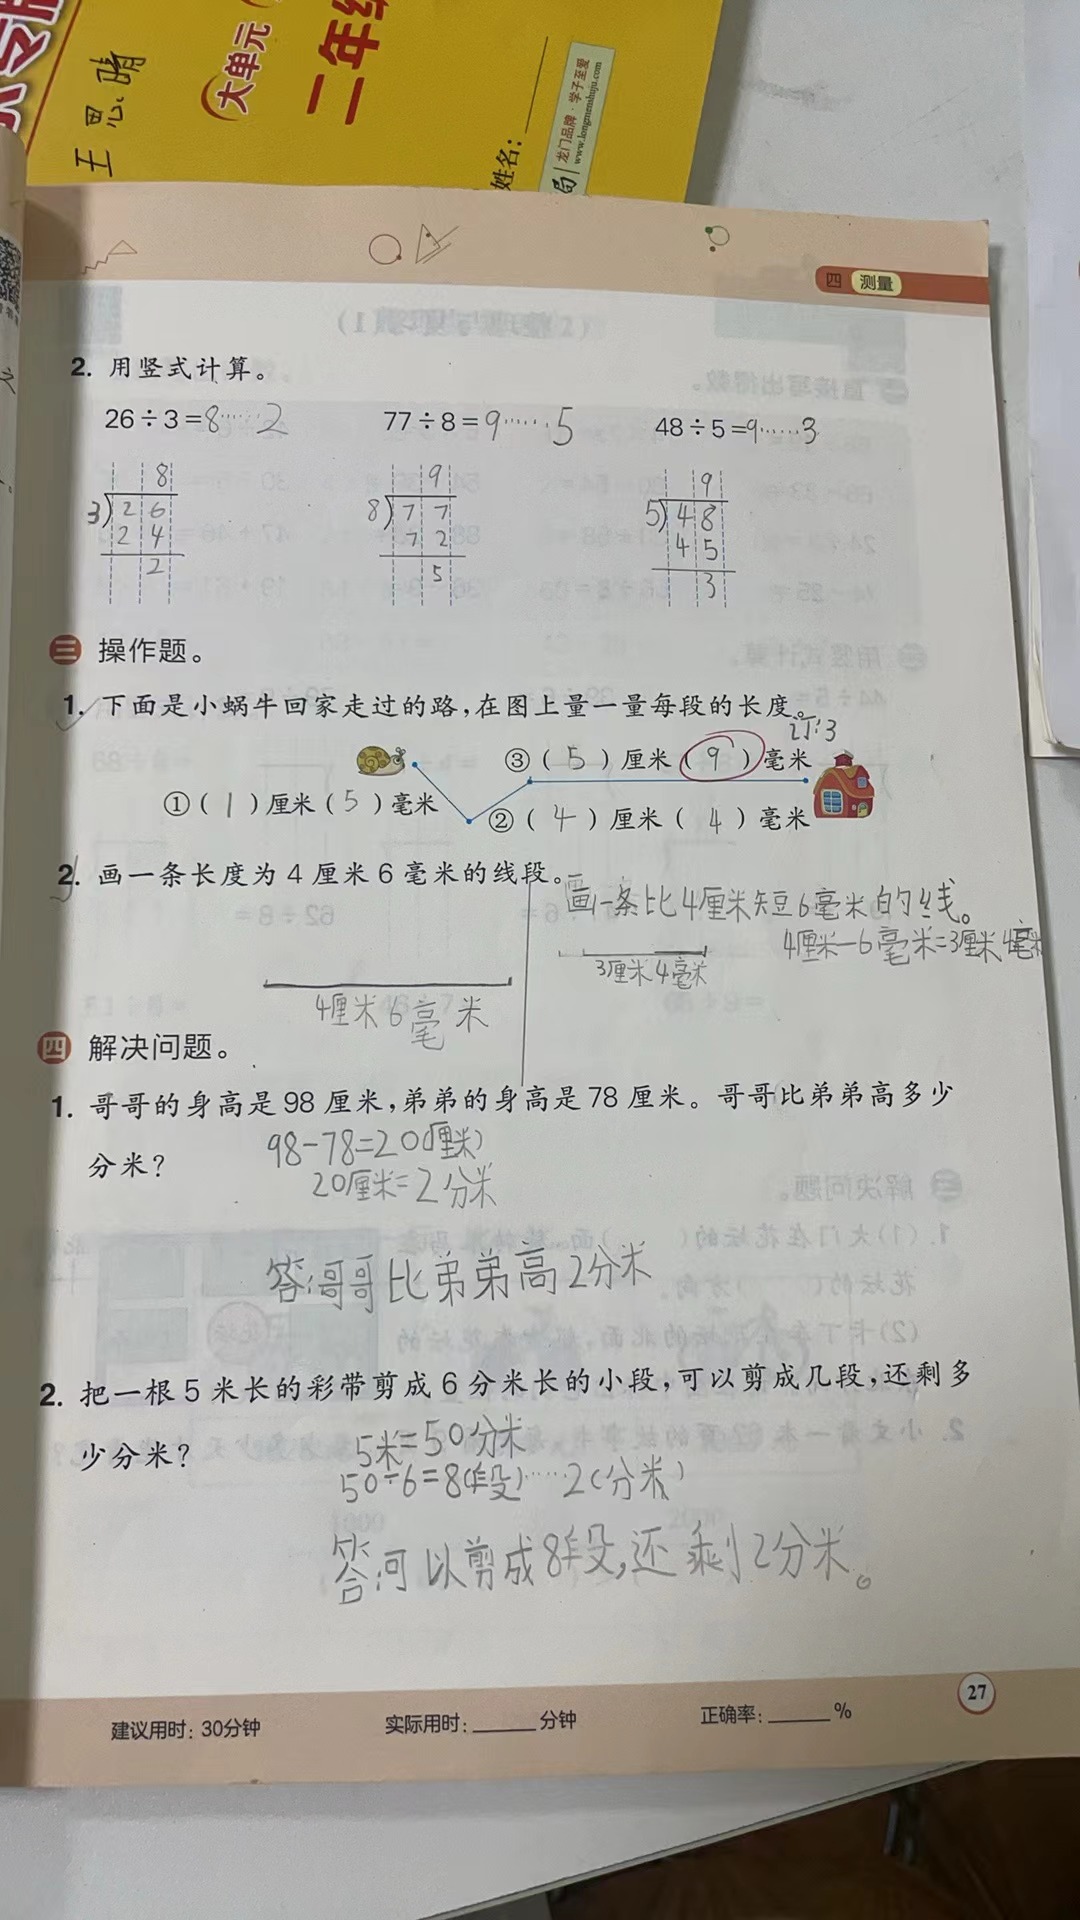 王思晴
大单元
二年级
姓名:
龙门品牌·学子至爱
www.longmenshuju.com
四 测量
2. 用竖式计算。
26÷3=8……2 77÷8=9……5 48÷5=9……3
8 9 9
3)26 8)77 5)48
24 72 45
2 5 3
三 操作题。
1. 下面是小蜗牛回家走过的路,在图上量一量每段的长度。
订:3
③(5)厘米(9)毫米
①(1)厘米(5)毫米
②(4)厘米(4)毫米
2. 画一条长度为4厘米6毫米的线段。
画一条比4厘米短6毫米的线。
4厘米-6毫米=3厘米4毫米
3厘米4毫米
4厘米6毫米
四 解决问题。
1. 哥哥的身高是98厘米,弟弟的身高是78厘米。哥哥比弟弟高多少
分米?
98-78=20(厘米)
20厘米=2分米
答:哥哥比弟弟高2分米
2. 把一根5米长的彩带剪成6分米长的小段,可以剪成几段,还剩多
少分米?
5米=50分米
50÷6=8(段)……2(分米)
答:可以剪成8段,还剩2分米。
27
建议用时:30分钟 实际用时:______分钟 正确率:______%